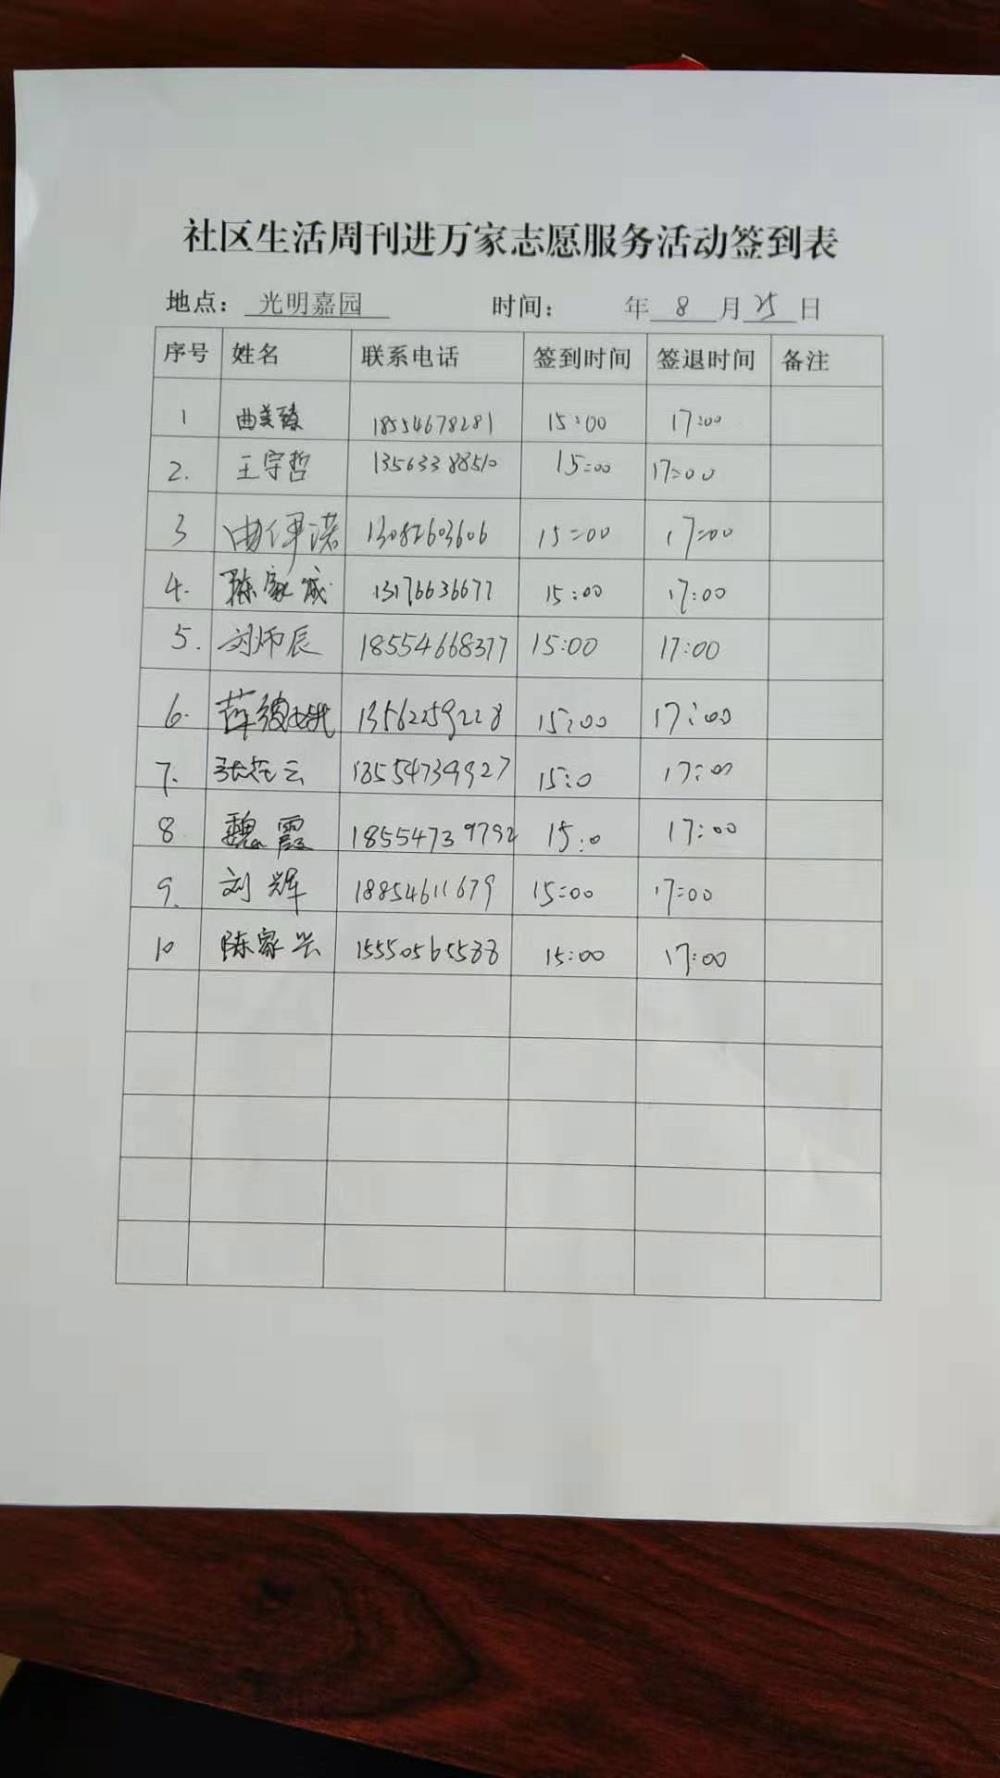 社区生活周刊进万家志愿服务活动签到表
地点： 光明嘉园 时间： 年 8 月 25 日
序号 姓名 联系电话 签到时间 签退时间 备注
1 曲美臻 18554678281 15:00 17:00
2. 王守哲 13563388510 15:00 17:00
3 13082603606 15:00 17:00
4. 陈家威 13176636677 15:00 17:00
5. 刘炳辰 18554668377 15:00 17:00
6. 13562259228 15:00 17:00
7. 18554739927 15:0 17:00
8 魏霞 18554739792 15:0 17:00
9. 刘辉 18854611679 15:00 17:00
10 陈家兴 15550565588 15:00 17:00